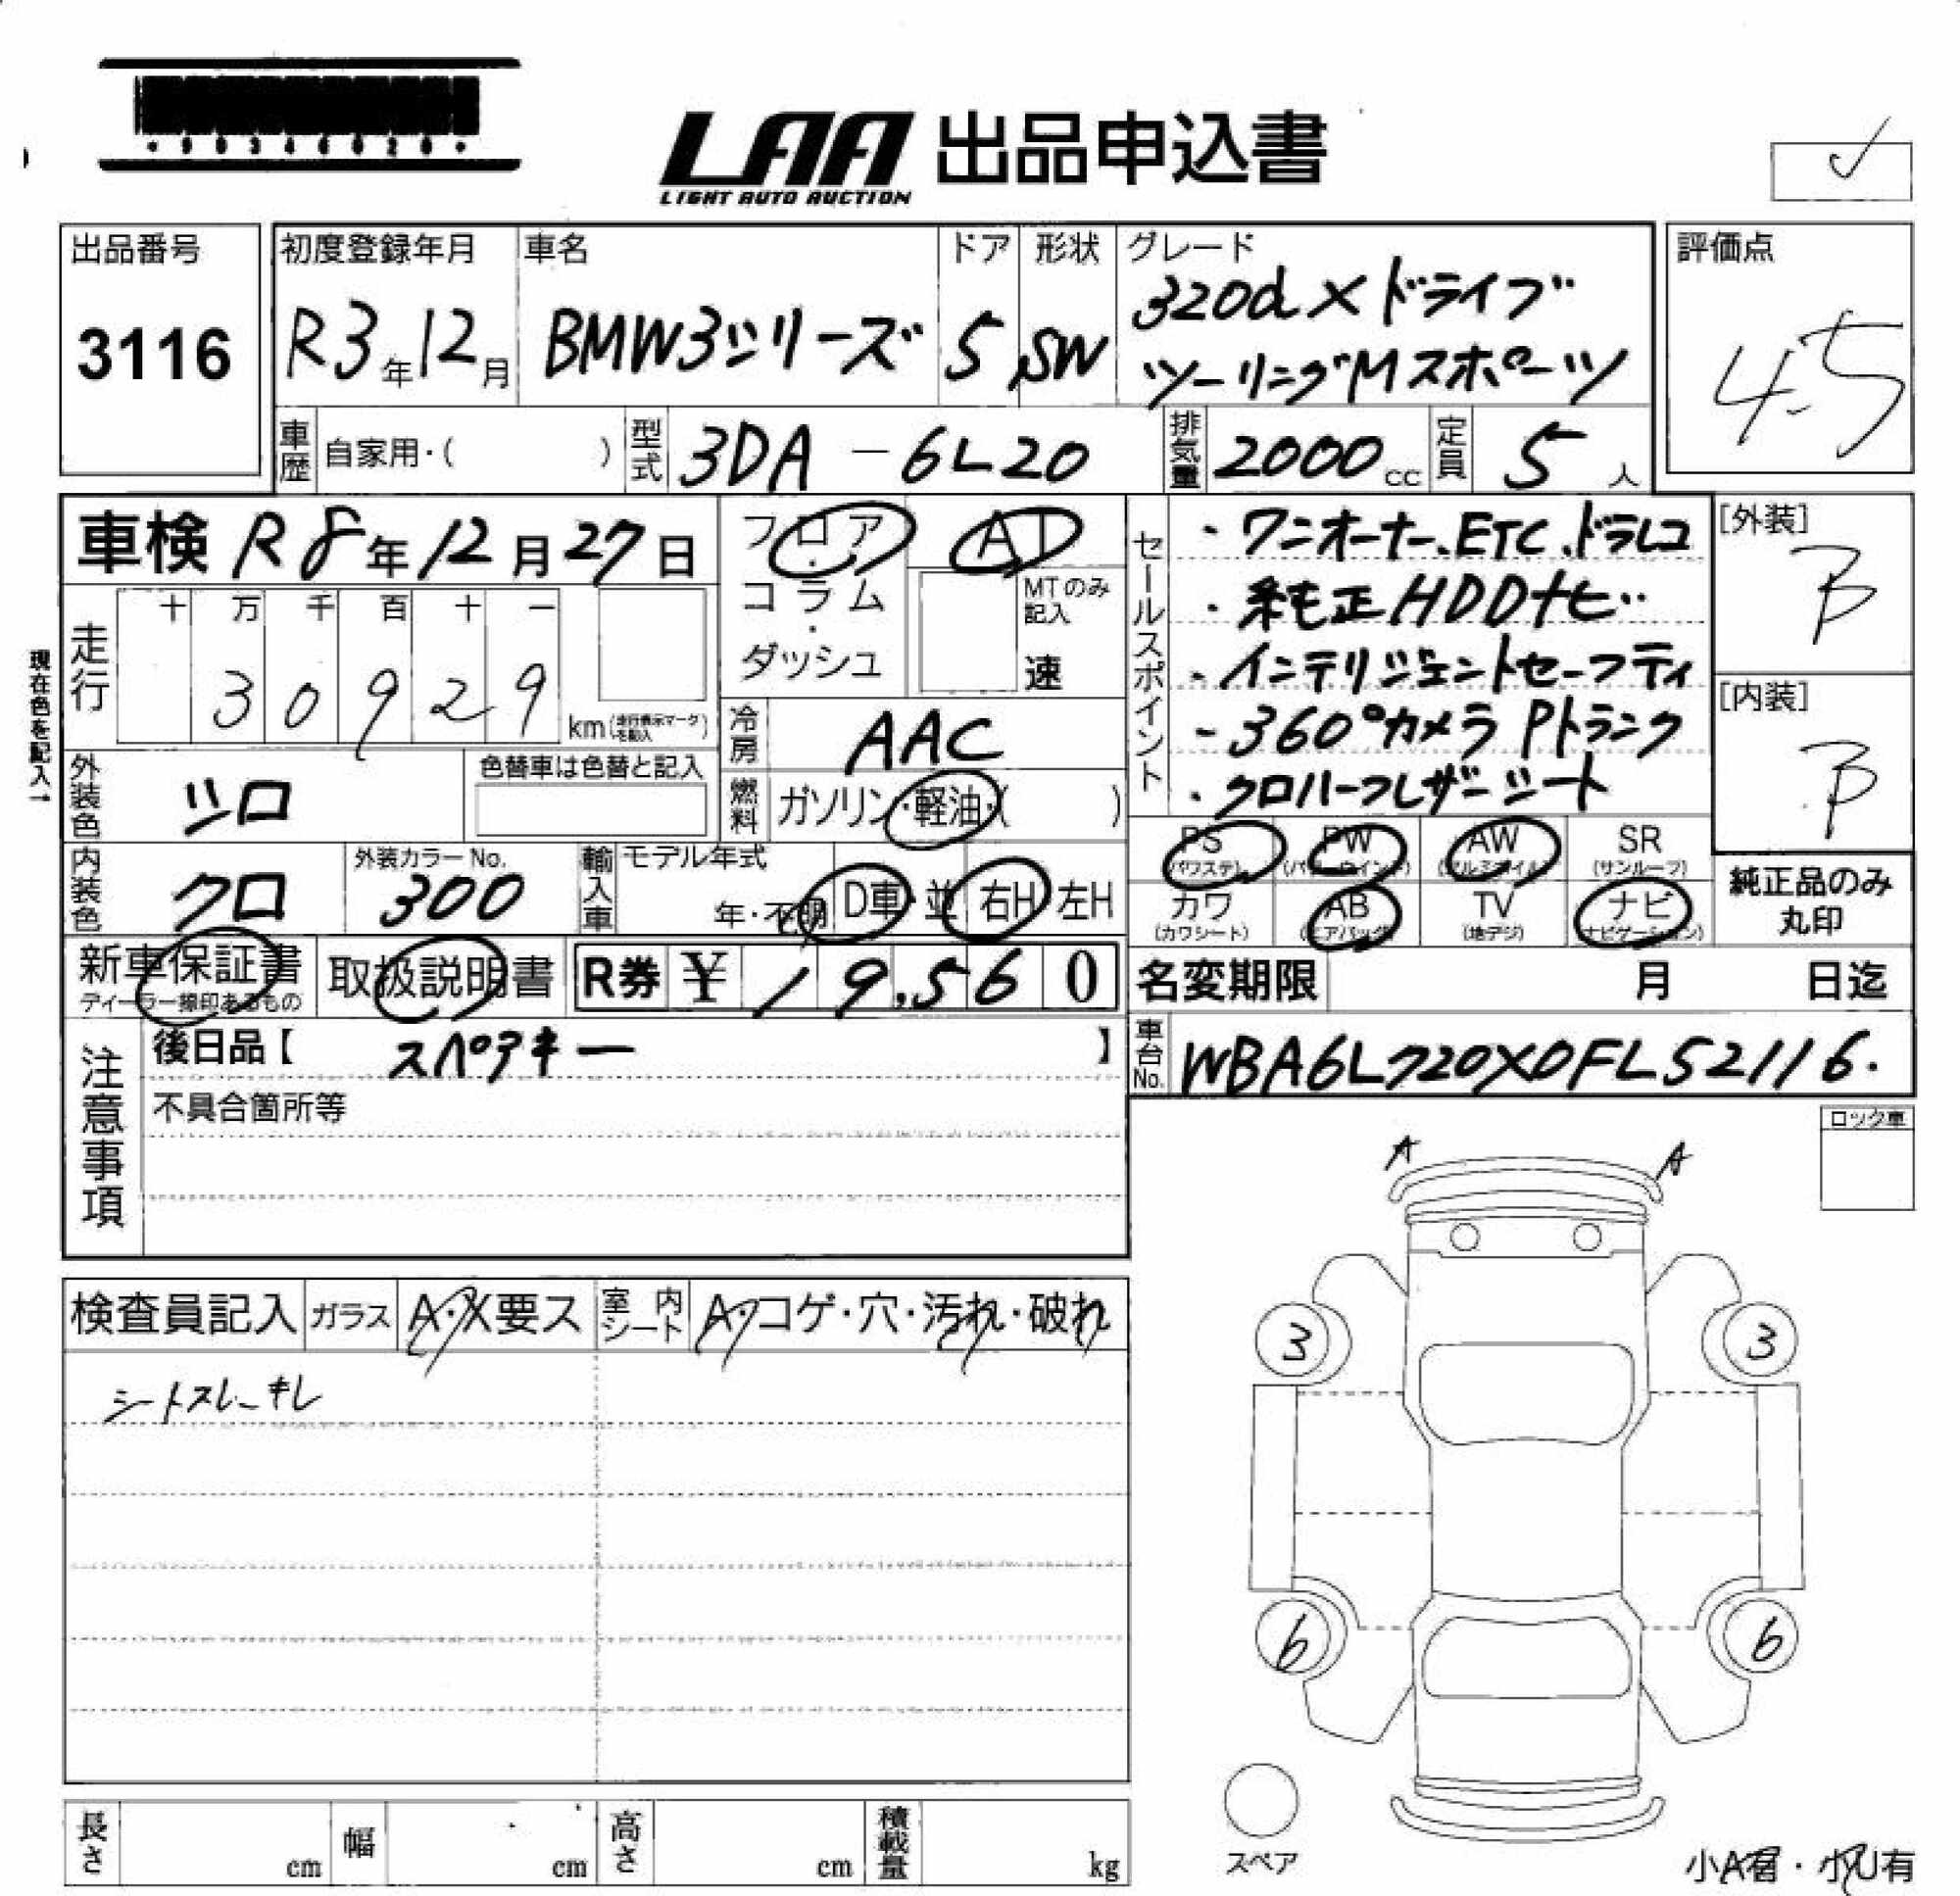 ・90346020・
LAA 出品申込書
LIGHT AUTO AUCTION
✓
出品番号
3116
初度登録年月
R3年12月
車名
BMW3シリーズ
ドア
5
形状
SW
グレード
320d Xドライブ
ツーリングMスポーツ
評価点
4.5
車歴 自家用・( )
型式 3DA-6L20
排気量 2000cc
定員 5人
車検 R8年12月27日
フロア・コラム・ダッシュ
AT
MTのみ記入
速
セールスポイント
・ワンオーナー、ETC、ドラレコ
・純正HDDナビ
・インテリジェントセーフティ
・360°カメラ Pトランク
・クロハーフレザーシート
[外装]
B
[内装]
B
現在色を記入→
走行
十 万 千 百 十 一
3 0 9 2 9
km(走行表示マークを記入)
冷房 AAC
外装色 シロ
色替車は色替と記入
燃料 ガソリン・軽油・( )
内装色 クロ
外装カラーNo.
300
輸入車
モデル年式
年・不明
D車・並
右H・左H
PS (パワステ)
PW (パワーウインド)
AW (アルミホイル)
SR (サンルーフ)
カワ (カワシート)
AB (エアバック)
TV (地デジ)
ナビ (ナビゲーション)
純正品のみ丸印
新車保証書
ディーラー捺印あるもの
取扱説明書
R券 ¥ 19,560
名変期限 月 日迄
注意事項
後日品【 スペアキー 】
不具合箇所等
車台No. WBA6L720X0FL52116.
ロック車
A A
検査員記入
ガラス
A・X要ス
室内シート
A・コゲ・穴・汚れ・破れ
シートスレ、キレ
3 3
6 6
スペア
長さ cm
幅 cm
高さ cm
積載量 kg
小A有・小U有